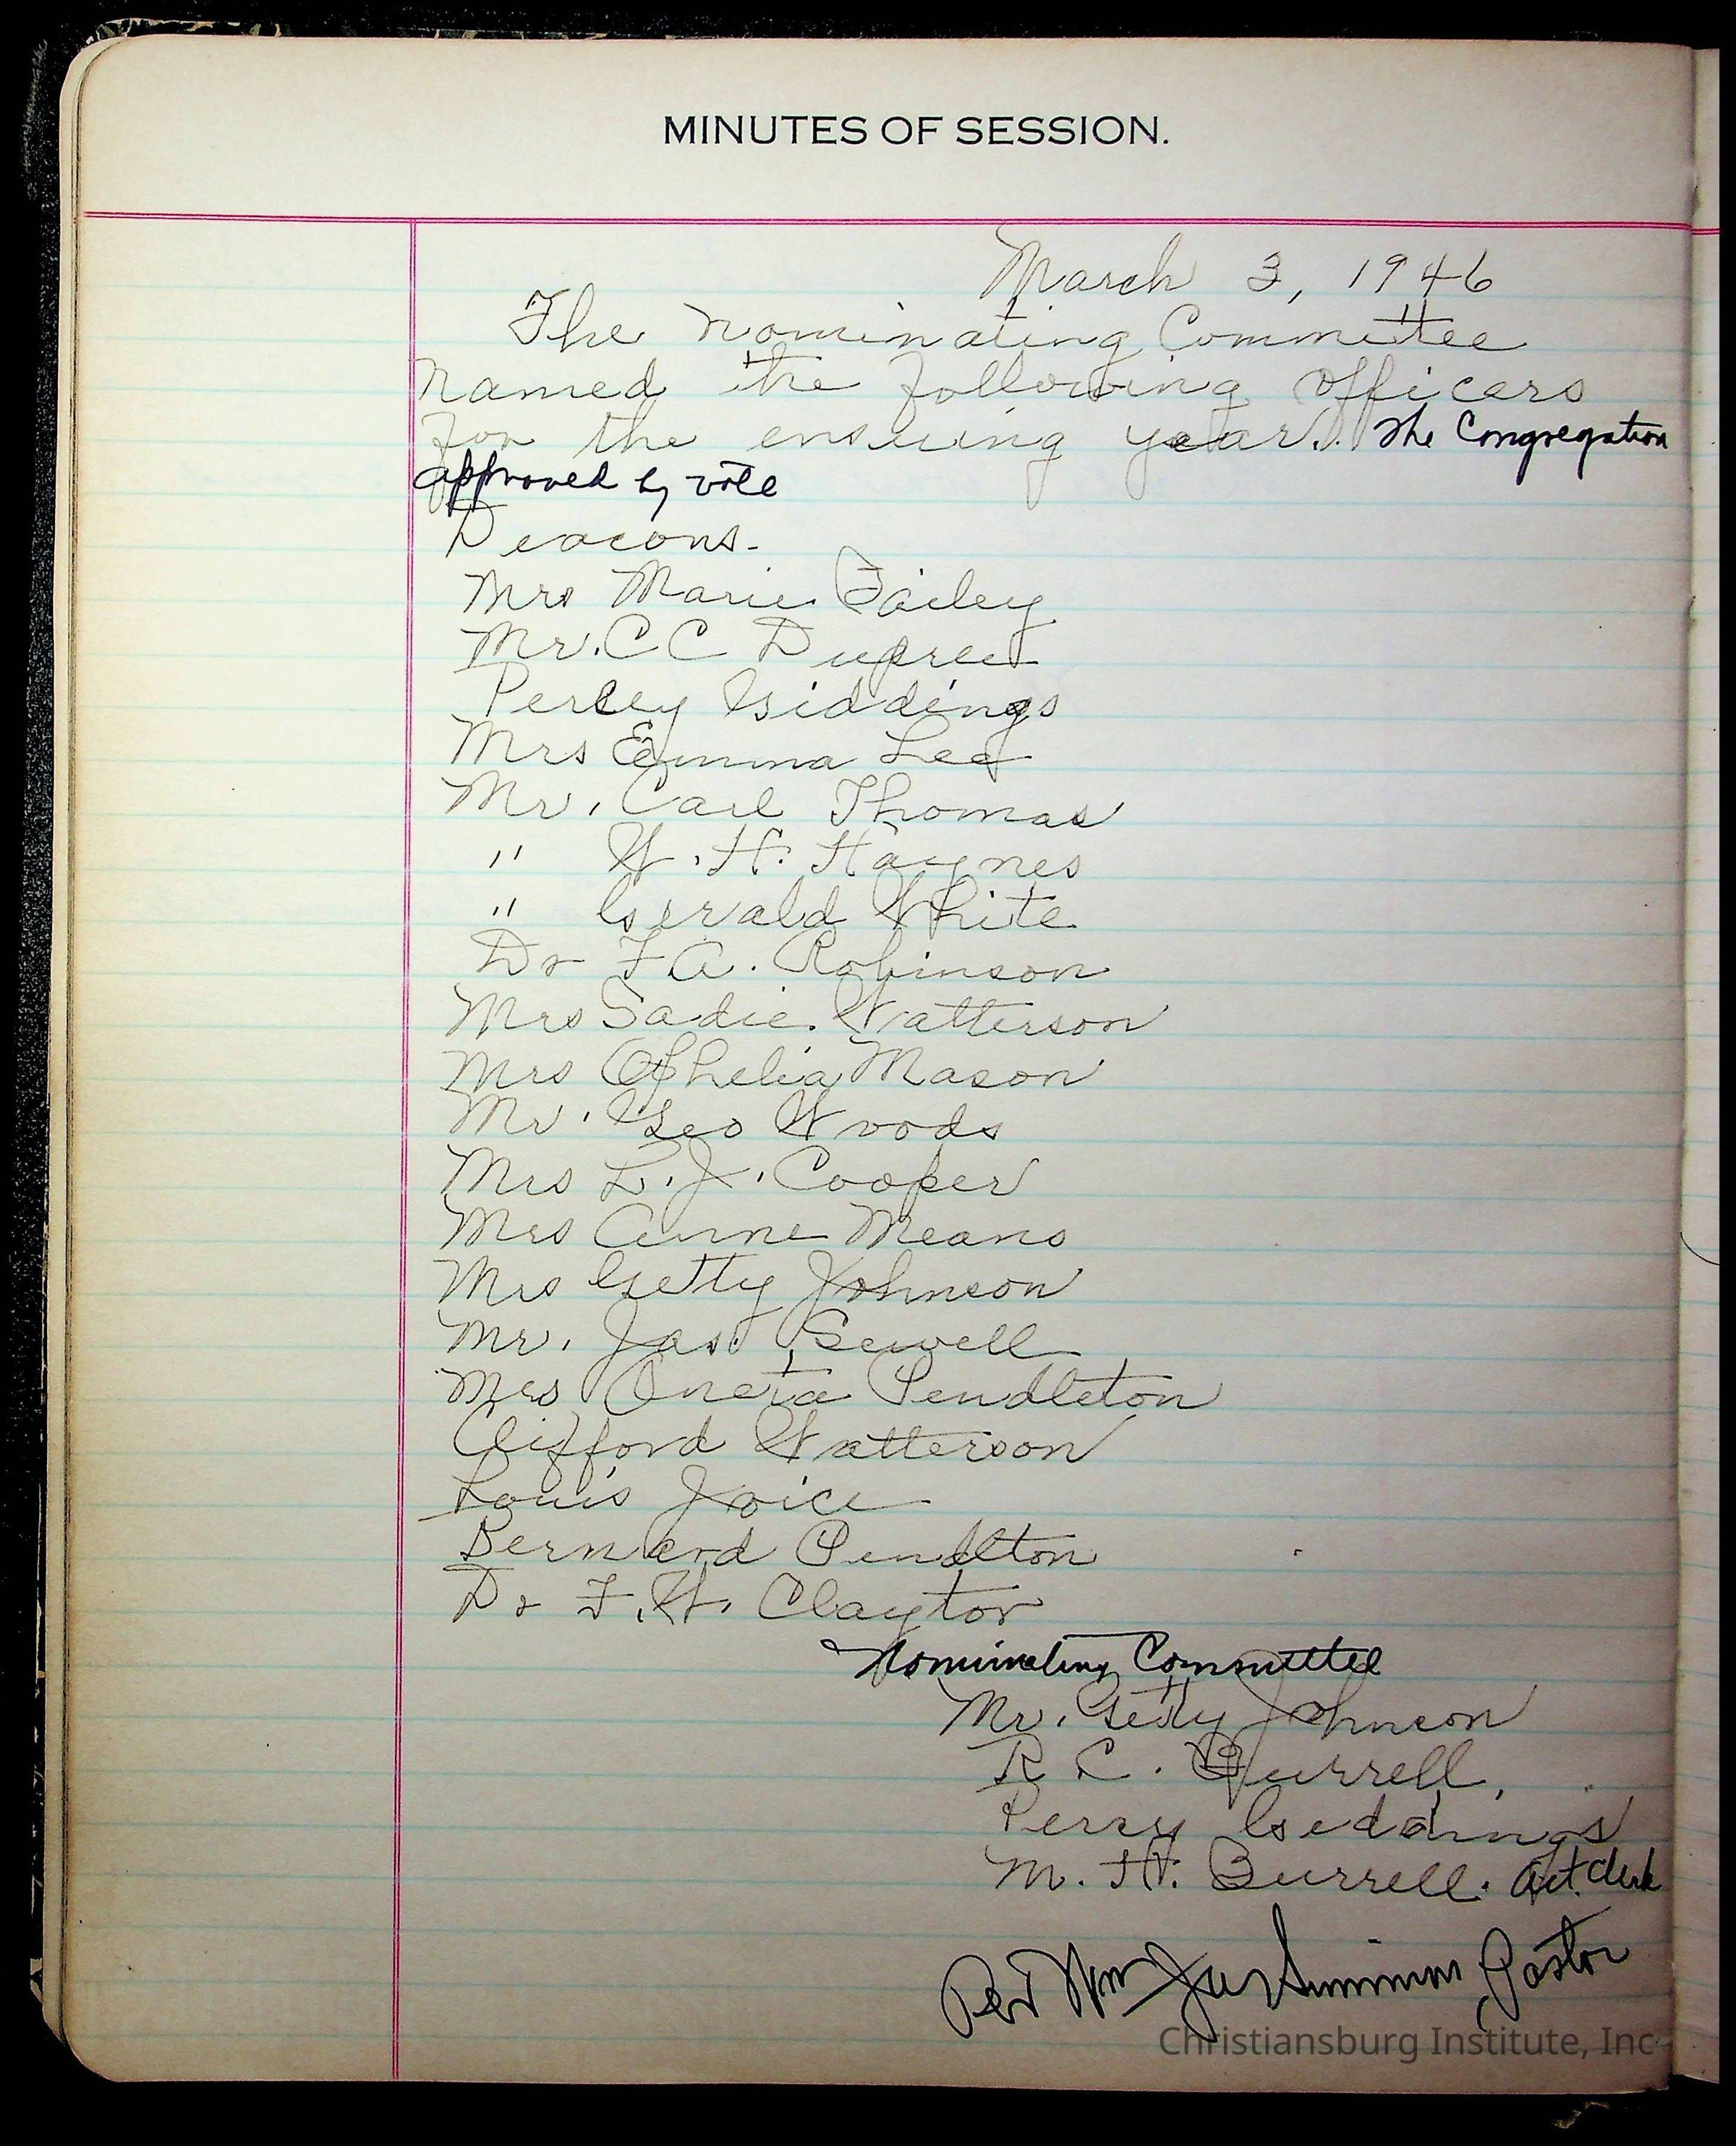 MINUTES OF SESSION.
March 3, 1946
The Nominating Committee
named the following officers
for the ensuing year. The Congregation
approved by vote
Deacons.
Mrs Marie Bailey
Mr. C C Dupree
Percy Giddings
Mrs Emma Lee
Mr. Carl Thomas
" W. H. Haynes
" Gerald White
Dr F A. Robinson
Mrs Sadie Watterson
Mrs Ophelia Mason
Mr. Geo Woods
Mrs L. J. Cooper
Mrs Anne Means
Mrs Getty Johnson
Mr. Jas. Sewell
Mrs Oneta Pendleton
Clifford Watterson
Louis Joice
Bernard Pendlton
Dr F. W. Claytor
Nominating Committee
Mr. Getty Johnson
R C. Burrell,
Percy Geddings
M. H. Burrell. Act. Clerk
Wm Jas Simmons Pastor
Christiansburg Institute, Inc